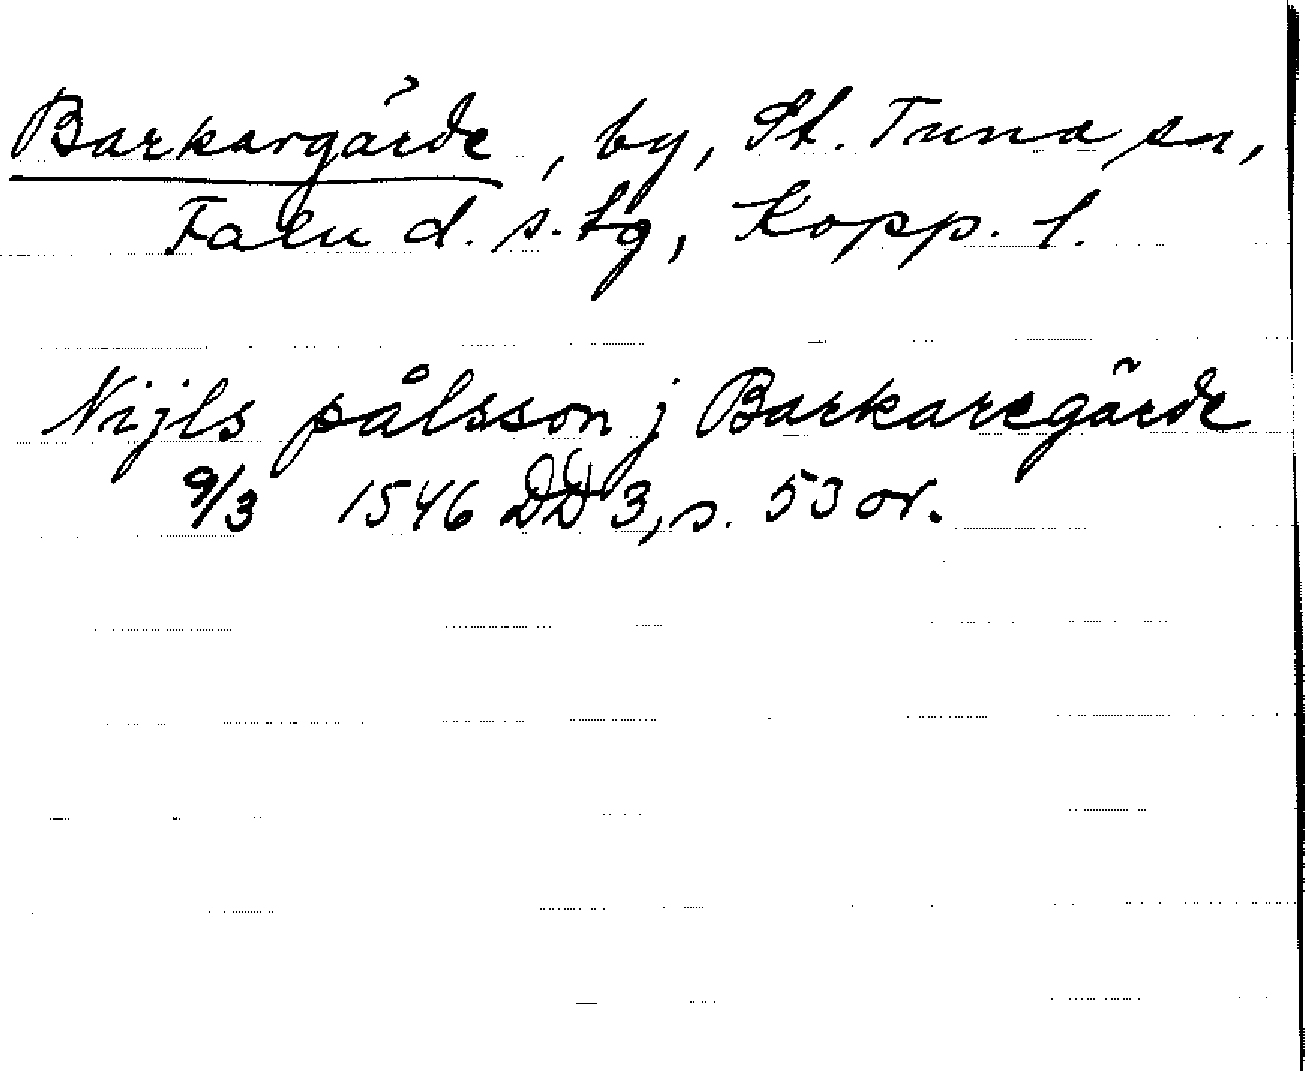 Barkargärde, by, St. Tuna sn,
Falu d. s. tg, Kopp. l.
Nijls pålsson j Barkaregärde
9/3 1546 DD 3, s. 53 or.